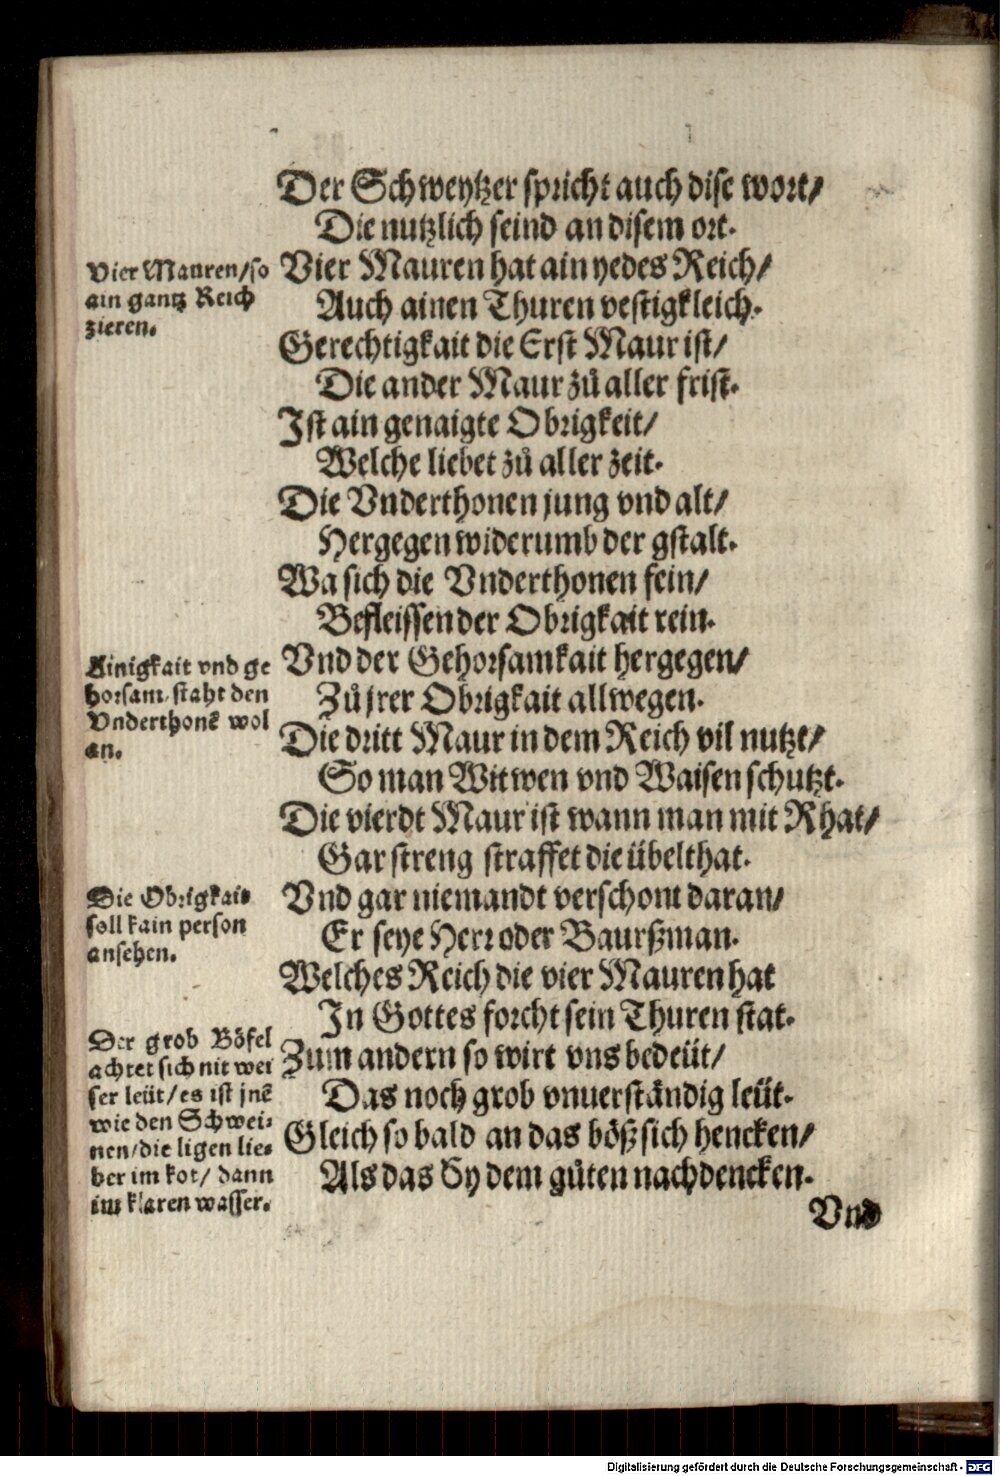 Der Schweytzer spricht auch dise wort/
Die nutzlich seind an disem ort.
Vier Mauren/so
ain gantz Reich
zieren.
Vier Mauren hat ain yedes Reich/
Auch ainen Thuren vestigkleich.
Gerechtigkait die Erst Maur ist/
Die ander Maur zů aller frist.
Ist ain genaigte Obrigkeit/
Welche liebet zů aller zeit.
Die Vnderthonen jung vnd alt/
Hergegen widerumb der gstalt.
Wa sich die Vnderthonen fein/
Befleissen der Obrigkait rein.
Ainigkait vnd ge
horsam staht den
Vnderthonẽ wol
an.
Vnd der Gehorsamkait hergegen/
Zů jrer Obrigkait allwegen.
Die dritt Maur in dem Reich vil nutzt/
So man Witwen vnd Waisen schutzt.
Die vierdt Maur ist wann man mit Rhat/
Gar streng straffet die übelthat.
Die Obrigkait
soll kain person
ansehen.
Vnd gar niemandt verschont daran/
Er seye Herr oder Baurßman.
Welches Reich die vier Mauren hat
In Gottes forcht sein Thuren stat.
Der grob Böfel
achtet sich nit wei
ser leüt/es ist jnẽ
wie den Schwei-
nen/die ligen lie-
ber im kot/ dann
im klaren wasser.
Zum andern so wirt vns bedeüt/
Das noch grob vnuerständig leüt.
Gleich so bald an das böß sich hencken/
Als das Sy dem gůten nachdencken.
Vnd
Digitalisierung gefördert durch die Deutsche Forschungsgemeinschaft - DFG